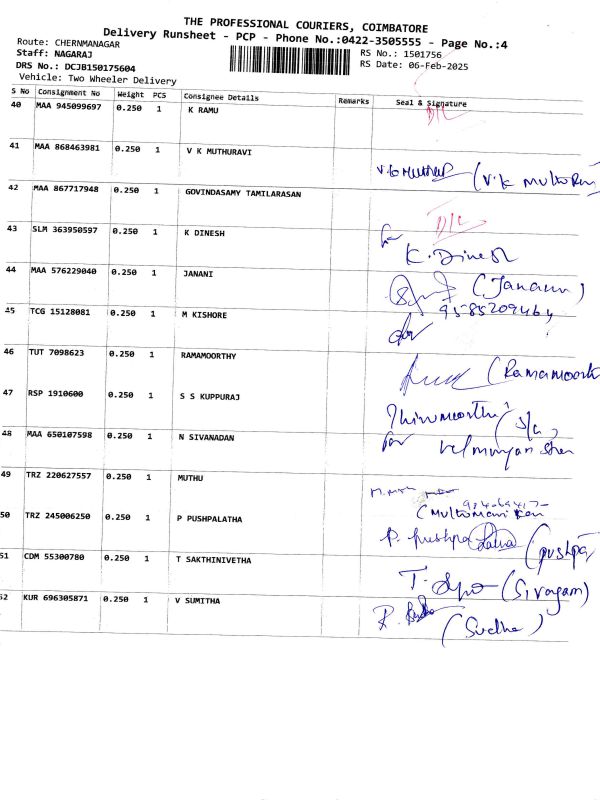 THE PROFESSIONAL COURIERS, COIMBATORE
Delivery Runsheet - PCP - Phone No.:0422-3505555 - Page No.:4
Route: CHERNMANAGAR
RS No.: 1501756
Staff: NAGARAJ
RS Date: 06-Feb-2025
DRS No.: DCJB150175604
Vehicle: Two Wheeler Delivery
S No Consignment No Weight PCS Consignee Details Remarks Seal & Signature
40 MAA 945099697 0.250 1 K RAMU D/L
41 MAA 868463981 0.250 1 V K MUTHURAVI
42 MAA 867717948 0.250 1 GOVINDASAMY TAMILARASAN D/L
43 SLM 363950597 0.250 1 K DINESH for K. Dinesh
44 MAA 576229040 0.250 1 JANANI
9585209464
45 TCG 15128081 0.250 1 M KISHORE for
46 TUT 7098623 0.250 1 RAMAMOORTHY (Ramamoorth
47 RSP 1910600 0.250 1 S S KUPPURAJ
48 MAA 650107598 0.250 1 N SIVANADAN for
49 TRZ 220627557 0.250 1 MUTHU
50 TRZ 245006250 0.250 1 P PUSHPALATHA P. Pushpa Latha (pushpa
51 CDM 55300780 0.250 1 T SAKTHINIVETHA (Sivagam)
52 KUR 696305871 0.250 1 V SUMITHA (Sudha)